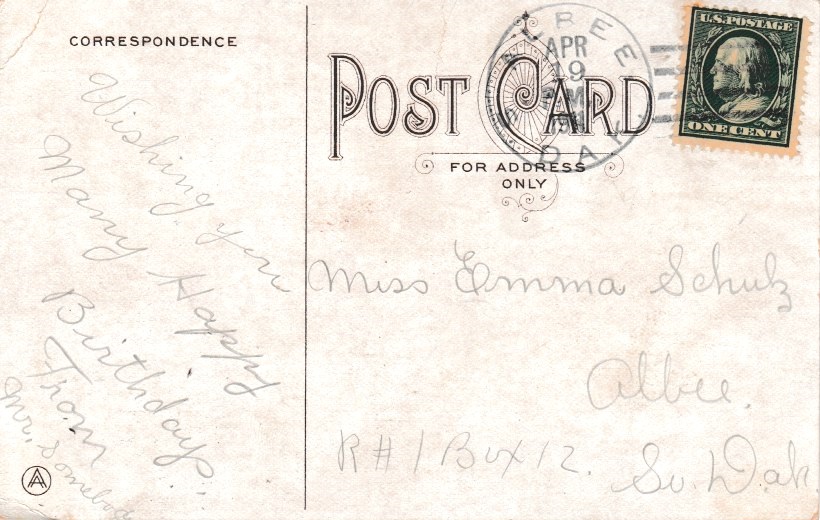 CORRESPONDENCE
Wishing you
Many Happy
Birthdays.
From
Mr. Somebody
POST CARD
FOR ADDRESS
ONLY
APR
19
DAK
U.S. POSTAGE
ONE CENT
Miss Emma Schulz
Albee.
R#1 Box 12.
So. Dak.